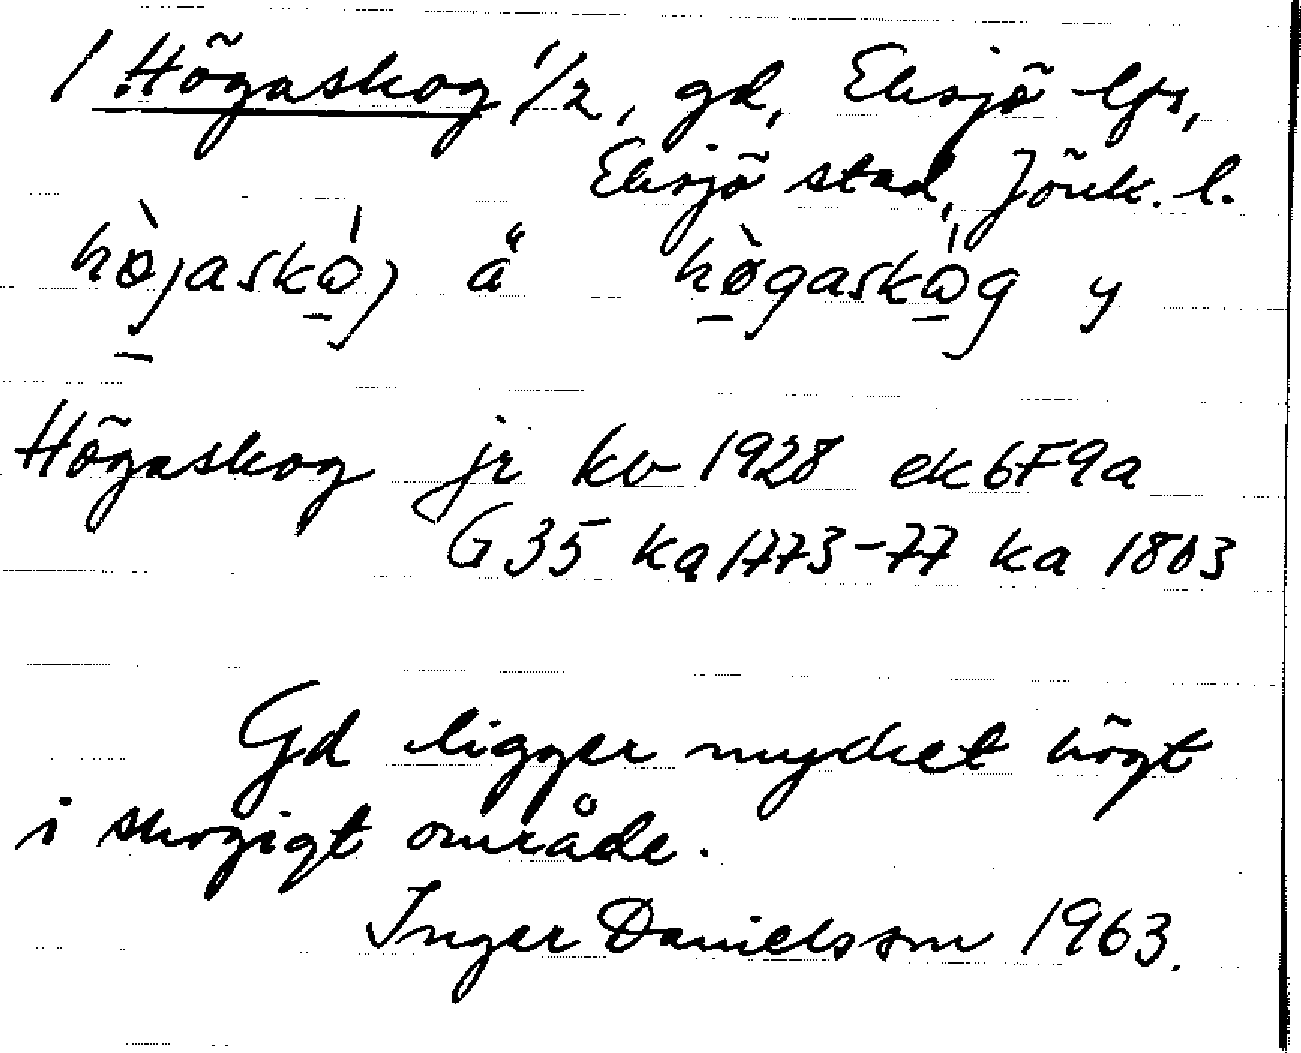 1 Högaskog 1/2, gd, Eksjö lfs,
Eksjö stad, Jönk. l.
hø̀jaskòj ä hø̀gaskòg y
Högaskog jr kv 1928 ek 6F9a
G35 ka 1773-77 ka 1803
Gd ligger mycket högt
i skogigt område.
Inger Danielsson 1963.